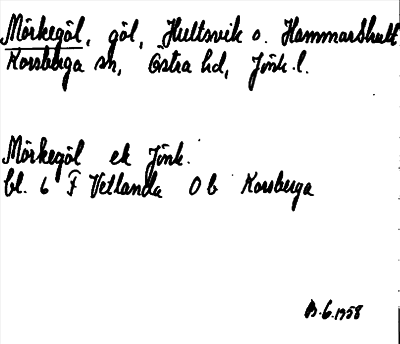 Mörkegöl, göl, Hultsvik o. Hammarshult
Korsberga sn, Östra hd, Jönk. l.
Mörkegöl ek Jönk.
bl. 6 F Vetlanda 0 b Korsberga
B. 6. 1958